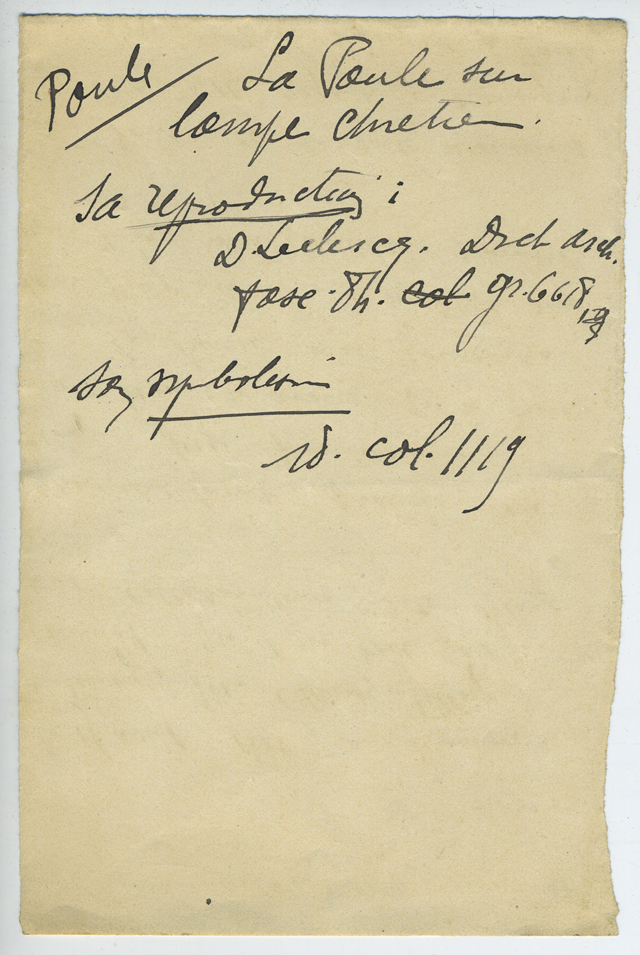 Poule / La Poule sur
lampe chretien.
Sa reproduction :
D. Leclercq. Dict arch.
fasc. 84. col gr. 6618
son symbolism
id. col. 1119